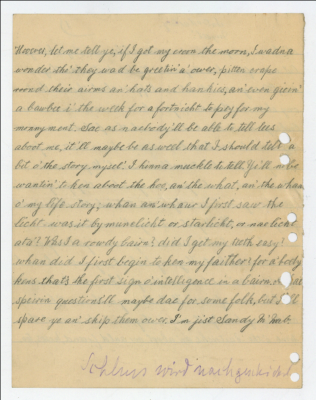 However, let me tell ye, if I got my crown the morn, I wadna
wonder tho' they wad be greetin' a' ower, pitten crape
roond their airms an' hats and hankies, an' even giein'
a bawbee i' the week for a fortnicht to pey for my
monyment. Sae as naebody'll be able to tell lees
aboot me, it'll maybe be as weel that I should tell a
bit o' the story mysel'. I henna muckle to tell. Ye'll no be
wantin' to ken aboot the hoo, an' the what, an' the whan
o' my life story; whan an' whaur I first saw the
licht: was it by munelicht or starlicht, or nae licht
ata'? Was I a rowdy bairn? did I get my teeth easy?
whan did I first begin to ken my faither? for a'body
kens that's the first sign o' intelligence in a bairn,
speirin questions'll maybe dae for some folk, but I'll
spare ye an' skip them ower. I'm jist Sandy M'Nab.
Schluss wird nachgeschickt